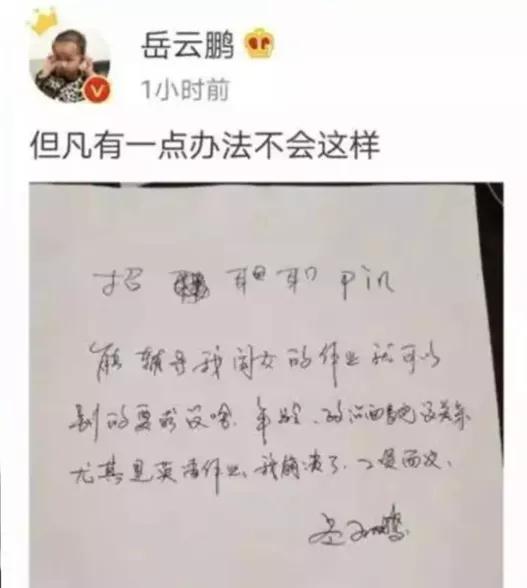 岳云鹏
1小时前
但凡有一点办法不会这样
招 职职 Pin
能辅导我闺女的作业就可以
别的要求没啥.年龄、政治面貌都没关系
尤其是英语作业,我崩溃了.工资面议、
岳云鹏